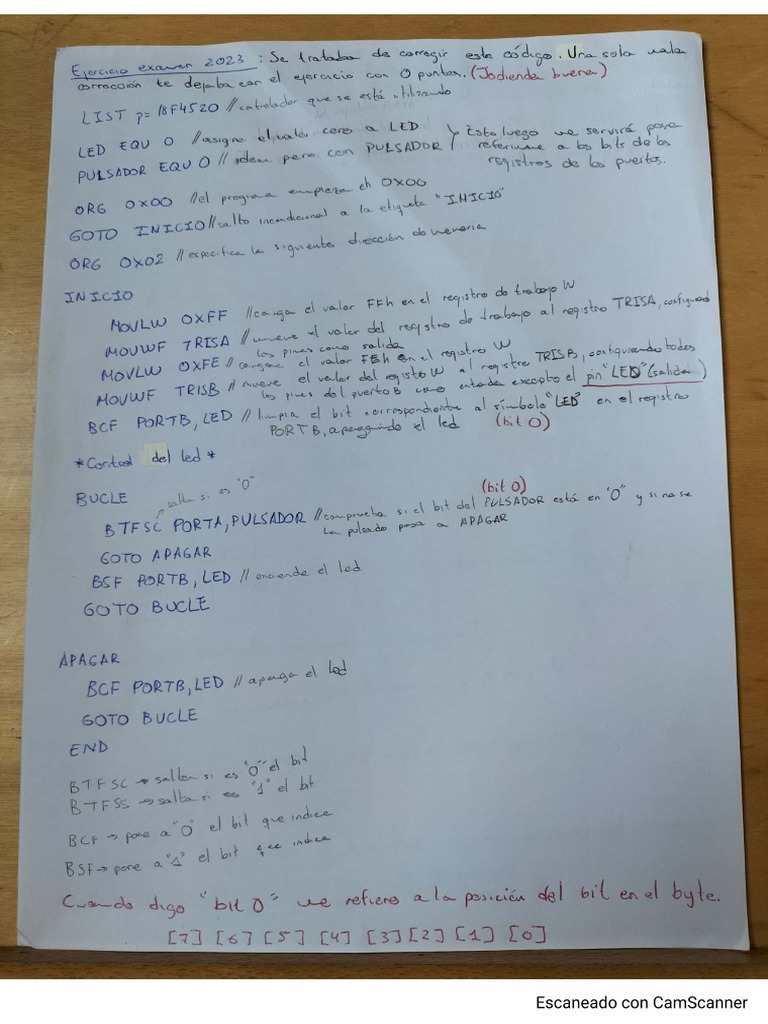 Ejercicio examen 2023 : Se trataba de corregir este código. Una sola mala
corrección te dejaba con el ejercicio con 0 puntos. (Jodienda buena)
LIST p=18F4520 //controlador que se está utilizando
LED EQU 0 //asigno el valor cero a LED
PULSADOR EQU 0 // idem pero con PULSADOR
Esto luego me servirá para
referirme a los bits de los
registros de los puertos.
ORG 0X00 //el programa empieza en 0X00
GOTO INICIO //salto incondicional a la etiqueta "INICIO"
ORG 0X02 //especifica la siguiente dirección de memoria
INICIO
MOVLW 0XFF //carga el valor FFh en el registro de trabajo W
MOVWF TRISA //mueve el valor del registro de trabajo al registro TRISA, configurand
los pines como salida
MOVLW 0XFE // cargamos el valor FEh en el registro W
MOVWF TRISB // mueve el valor del registo W al registro TRISB, configurando todos
los pines del puerto B como entrada excepto el pin "LED" (salida)
BCF PORTB, LED // limpia el bit correspondiente al símbolo "LED" en el registro
PORTB, apagando el led (bit 0)
*Control del led*
BUCLE
salta si es "0"
(bit 0)
BTFSC PORTA, PULSADOR //comprueba si el bit del PULSADOR está en "0" y si no se
ha pulsado pasa a APAGAR
GOTO APAGAR
BSF PORTB, LED // enciende el led
GOTO BUCLE
APAGAR
BCF PORTB, LED // apaga el led
GOTO BUCLE
END
BTFSC → salta si es "0" el bit
BTFSS → salta si es "1" el bit
BCF → pone a "0" el bit que indice
BSF → pone a "1" el bit que indica
Cuando digo "bit 0" me refiero a la posición del bit en el byte.
[7] [6] [5] [4] [3] [2] [1] [0]
Escaneado con CamScanner